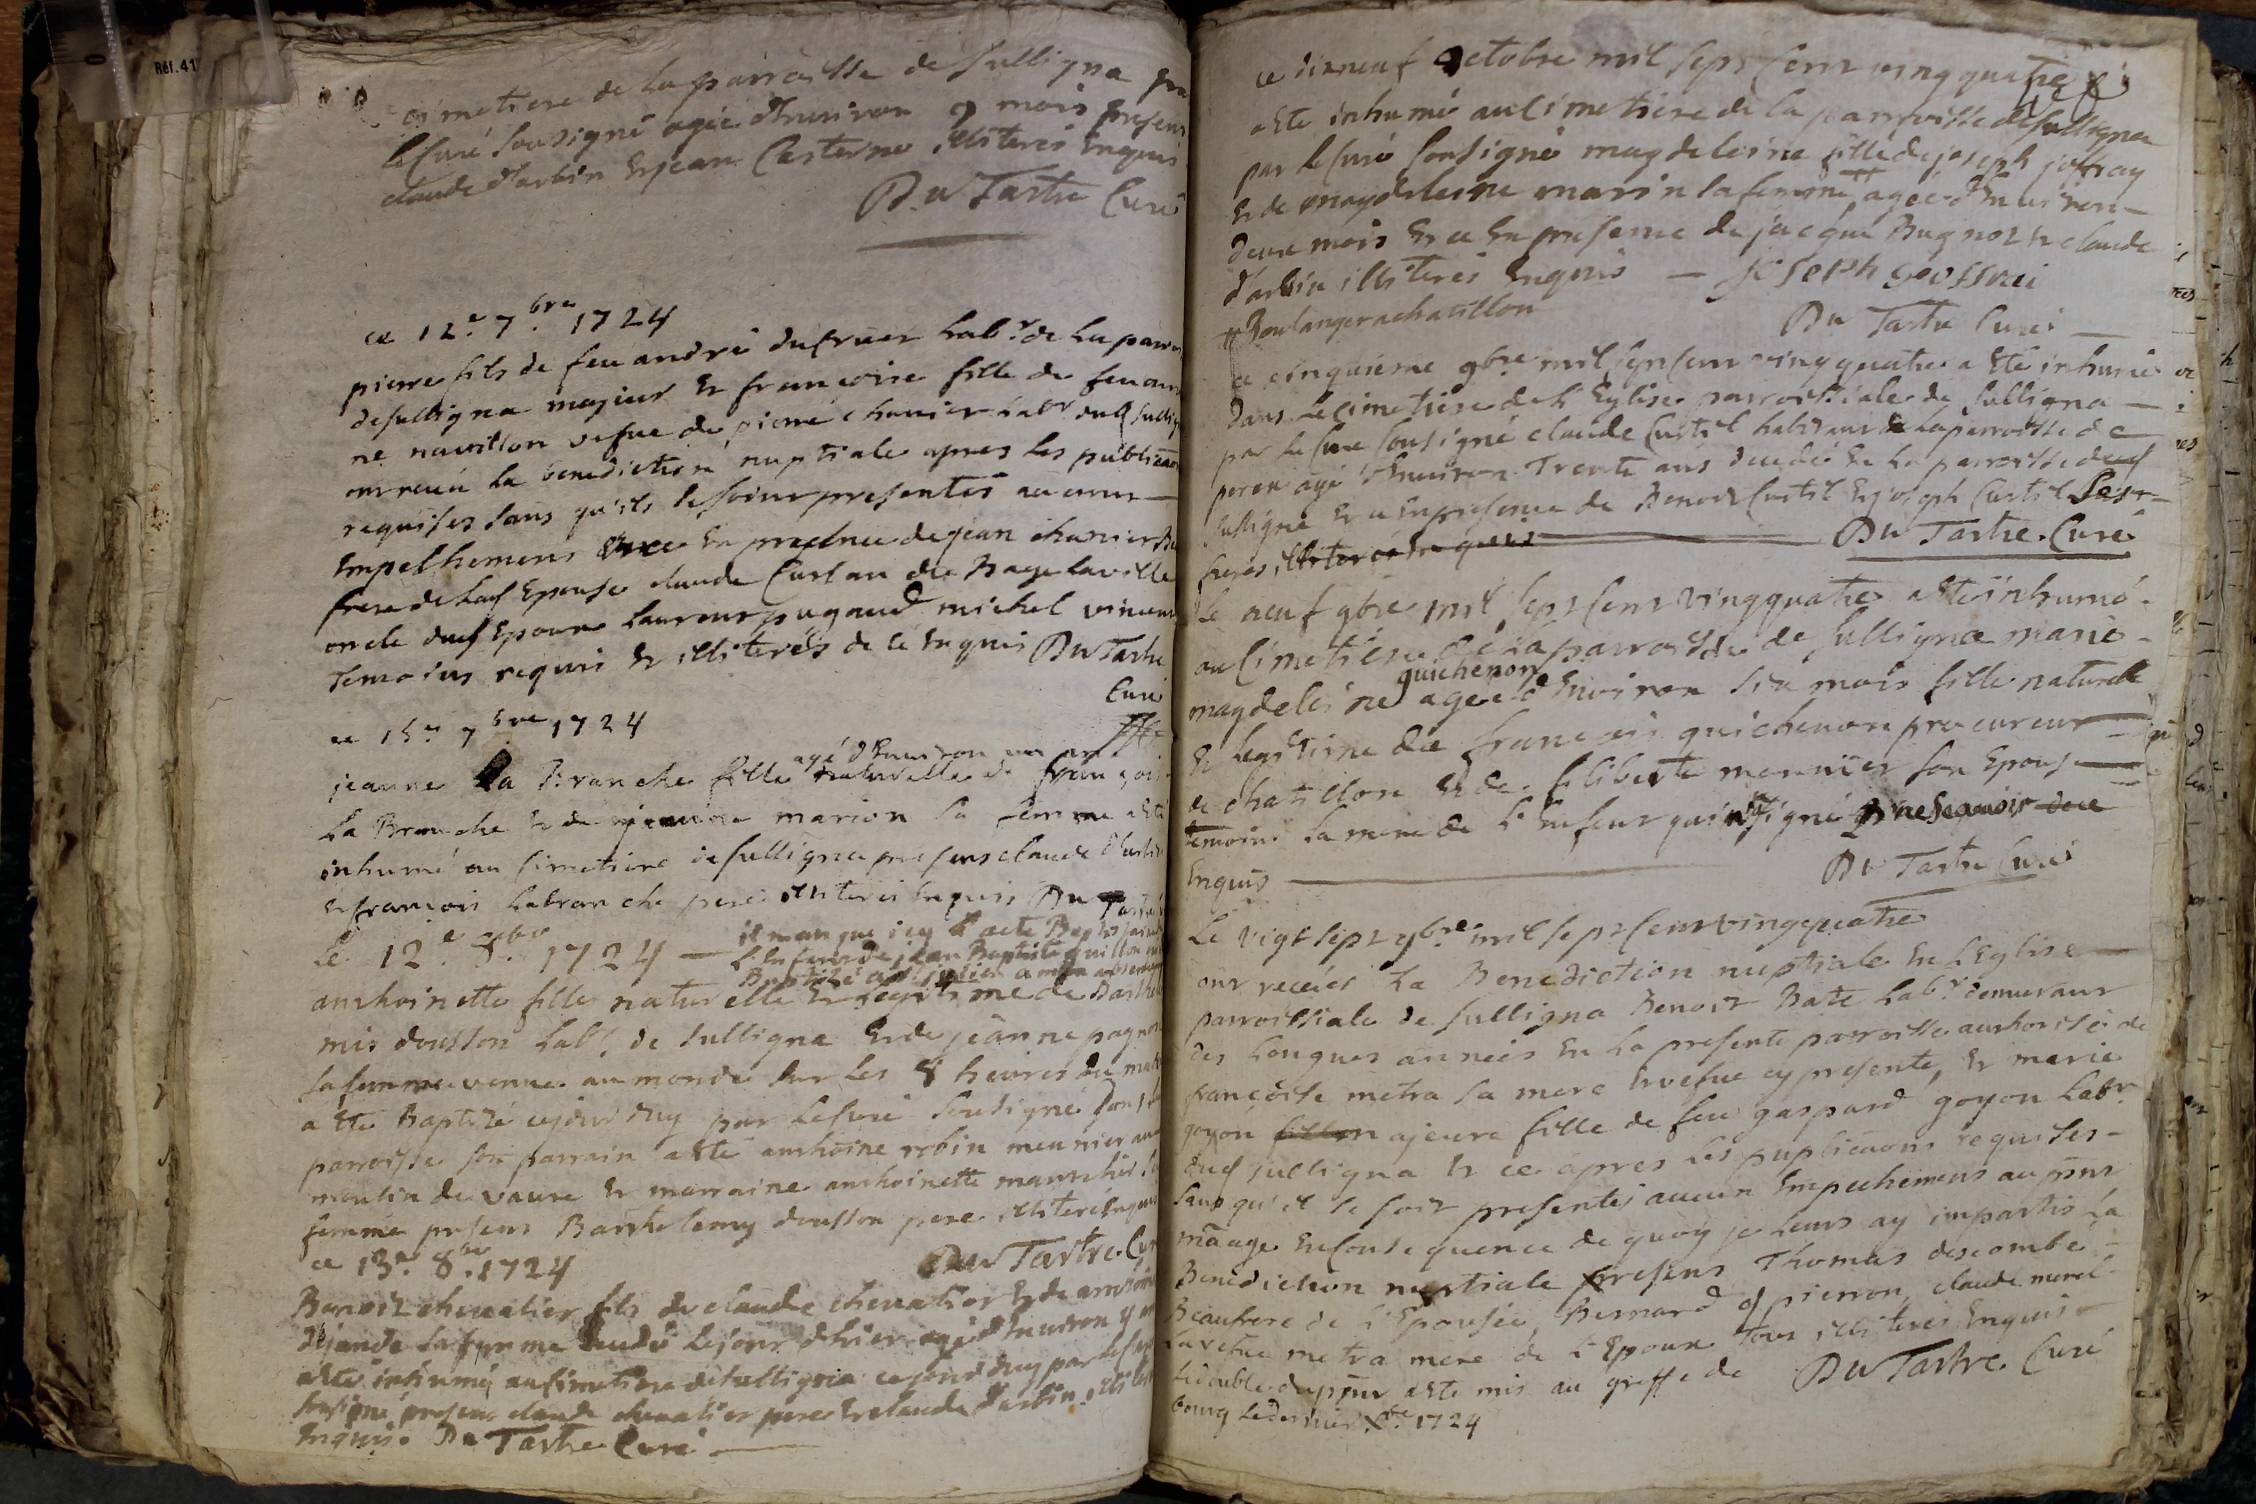 Réf. 41
cimetiere de la parroisse de Sulligna
le Curé sousigné agée d'Environ 9 mois presens
claude d'arbin Et jean Casterno illiterés Enquis
Du Tartre Curé
ce 12e 7bre 1724
pierre fils de feu andré ducruer Labr de la parro
de sulligna majeur Et francoise fille de feu
ne navillon vefue de pierre chanier Labr dud sullig
ont receu la benediction nuptiale apres les publica
requises sans qu'ils se soint presentés aucuns
Empeschemens En presence de jean chanier
frere de lad Epouse claude Curlan de Bage la ville
oncle dud Epoux Laurens pugaud michel vincent
temoins requis Et illiterés de ce Enquis Du Tartre
Curé
ce 15e 7bre 1724
agé d'Environ un an
jeanne La Branche fille naturelle de françois
La Branche Et de jeanne marion sa femme a esté
inhumé au Cimetiere de sulligna presens claude d'arbin
Et francois Labranche pere illiterés Enquis Du Tartre
il manque icy l'acte
Le 12e 8bre 1724 — L'Enfant de jean Baptiste guillon
Baptizé
anthoinette fille naturelle Et legitime de Barthele
mis dousson Labr de Sulligna Et de jeanne pagnon
sa femme venue au monde sur les 8 heures du matin
a este Baptizé cejourduy par le Curé sousigné dans la
parroisse son parrain a esté anthoine robin meunier au
moulin de vaure Et marraine anthoinette manichier sa
femme presens Barthelemy dousson pere illiteré Enquis
Du Tartre Curé
ce 13e 8bre 1724
Benoit chevalier fils de claude chevalier Et de
dejande sa femme decedé le jour d'hier agé d'Environ
a esté inhumé au Cimetiere de sulligna cejourduy par le Curé
sousigné presens claude chevalier pere Et claude d'arbin
Enquis Du Tartre Curé
ce dixneuf octobre mil sept Cent vingquatre
a Esté inhumé au Cimetiere de la parroisse de sulligna
par le Curé sousigné magdeleine fille de joseph joffray
Et de magdeleine marin sa femme agée d'Environ
deux mois Et ce En presence de jacque Bugnot Et claude
d'arbin illiterés Enquis — Joseph geoffrai
# Boulanger a chatillon
Du Tartre Curé
ce cinquieme 9bre mil sept cent vingquatre a Esté inhumé
dans le cimetiere de l'Eglise parroissiale de Sulligna
par le Curé sousigné claude Curtil habitant de la parroisse de
peron agé d'Environ Trente ans decedé En la parroisse dud
sulligna Et ce En presence de Benoit Curtil Et joseph Curtil ses
freres illiterés Enquis Du Tartre. Curé
Le neuf 9bre mil sept Cent vingquatre a esté inhumé
au Cimetiere de la parroisse de sulligna marie
guichenon
magdeleine agée d'Environ six mois fille naturelle
Et legitime de francois guichenon procureur
de chatillon Et de filiberte monnier son Epouse
temoins la mere de l'Enfant qui n'a signé
Enquis Du Tartre Curé
Le vigt sept 9bre mil sept Cent vingquatre
ont receues La Benediction nuptiale En l'Eglise
parroissiale de sulligna Benoit Bate Labr demeurant
des Longues années En la presente parroisse authorisé de
francoise metra sa mere Et vefue cy presente, Et marie
goyon majeure fille de feu gaspard goyon Labr
dud sulligna Et ce apres les publicaons requises
sans qu'il se soit presentés aucun Empechemens au pnt
maage En Consequence de quoy je leurs ay impartis La
Benediction nuptiale presens Thomas descombe
Beaufrere de l'Epousée, Bernard pierron, claude morel
La vefue metra mere de l'Epoux Tous illiterés Enquis
Le double du pnt a esté mis au greffe de Du Tartre Curé
bourg le dernier Xbre 1724